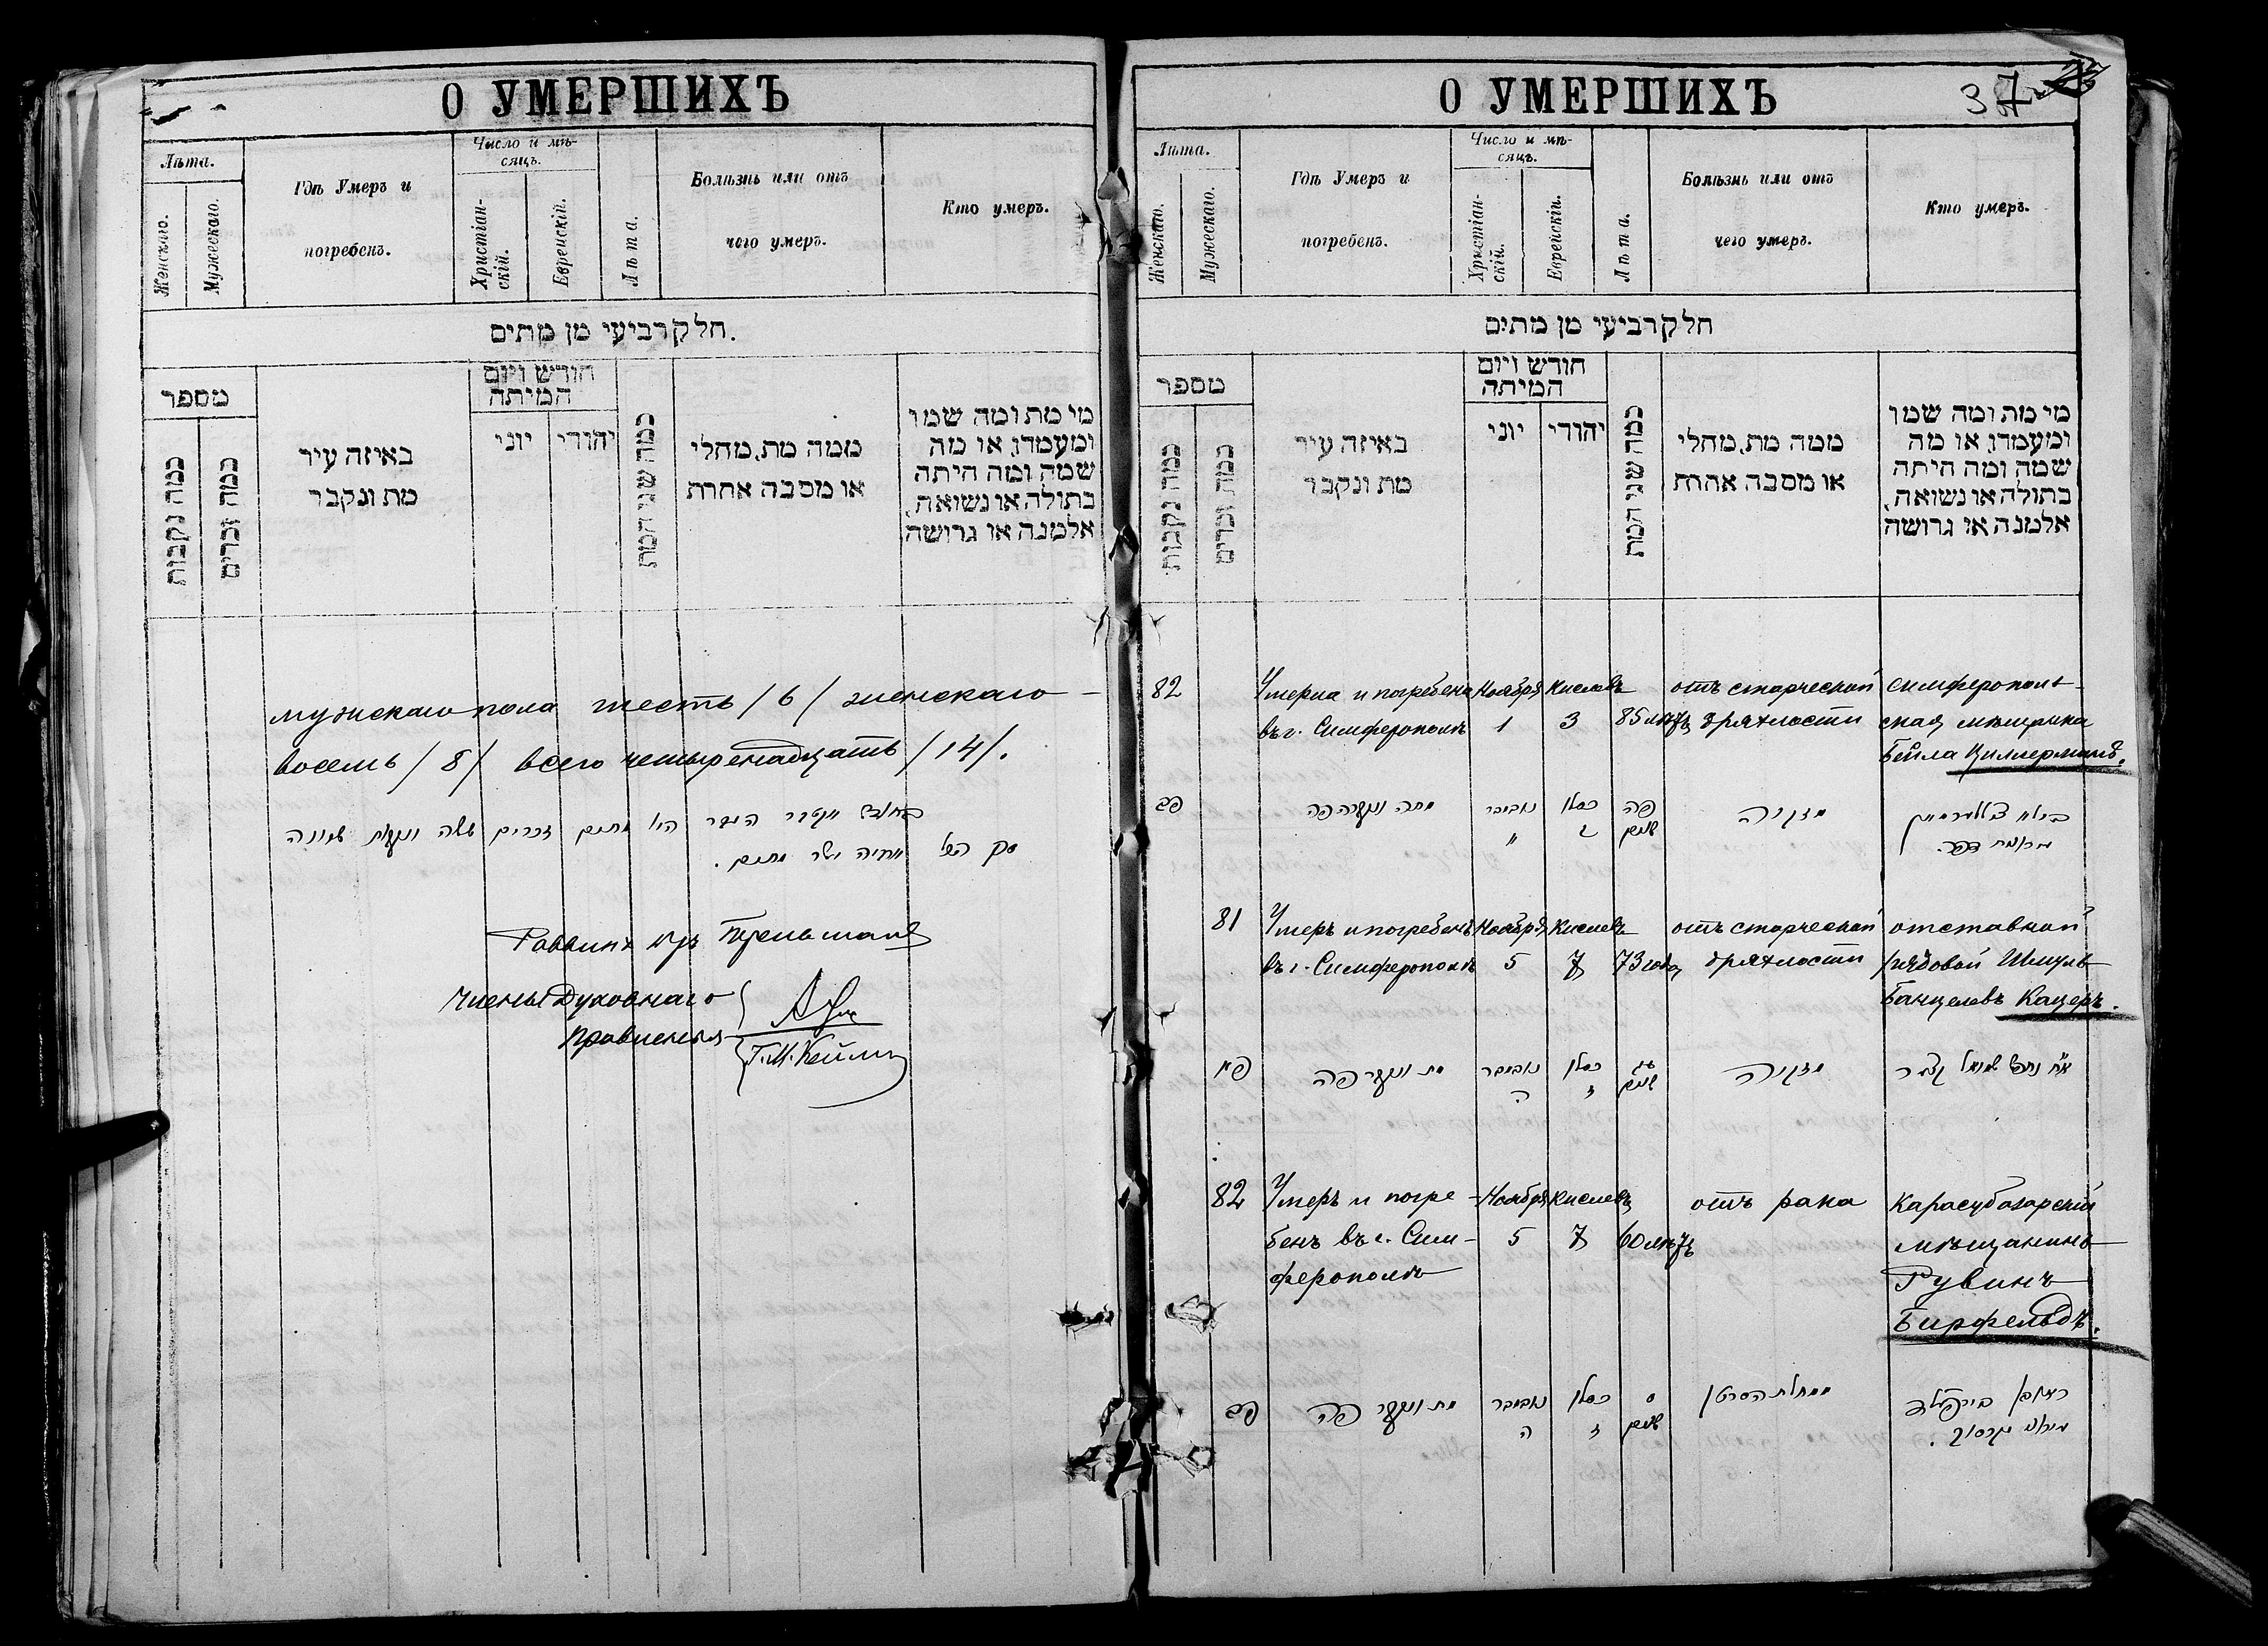 О УМЕРШИХЪ
Лѣта.
Женскаго.
Мужескаго.
Гдѣ Умеръ и
погребенъ.
Число и мѣ-
сяцъ.
Христіан-
скій.
Еврейскій.
Лѣта.
Болѣзнь или отъ
чего умеръ.
Кто умеръ.
חלק רביעי מן מתים.
מספר
כמה נקבות
כמה זכרים
באיזה עיר
מת ונקבר
חורש ויום
המיתה
יוני
יהודי
כמה שני המת
ממה מת, מחלי
או מסבה אחרת
מי מת ומה שמו
ומעמדו, או מה
שמה ומה היתה
בתולה או נשואה,
אלמנה או גרושה
мужскаго пола шесть /6/ женскаго –
восемь /8/ всего четырнадцать /14/.
זכרים ששה ונקבות שמונה
סך הכל
Раввинъ
Члены Духовнаго
Правленія
О УМЕРШИХЪ
37
Лѣта.
Женскаго.
Мужескаго.
Гдѣ Умеръ и
погребенъ.
Число и мѣ-
сяцъ.
Христіан-
скій.
Еврейскій.
Лѣта.
Болѣзнь или отъ
чего умеръ.
Кто умеръ.
חלק רביעי מן מתים
מספר
כמה נקבות
כמה זכרים
באיזה עיר
מת ונקבר
חורש ויום
המיתה
יוני
יהודי
כמה שני המת
ממה מת, מחלי
או מסבה אחרת
מי מת ומה שמו
ומעמדו, או מה
שמה ומה היתה
בתולה או נשואה,
אלמנה או גרושה
82 Умерла и погребена Ноября Кислевъ отъ старческой симферополь-
въ г. Симферополѣ 1 3 85 лѣтъ дряхлости ская мѣщанка
Бейла Циммерманъ.
פב מתה ונקברה פה נאביבר כסלו פה שנים מזקנה ביילא צימערמאן
81 Умеръ и погребенъ Ноября Кислевъ отъ старческой отставной
въ г. Симферополѣ 5 7 73 года дряхлости рядовой Шмуль
Банцелевъ Кацеръ.
פא מת ונקבר פה נאביבר ה כסלו ז עג שנים מזקנה
82 Умеръ и погре- Ноября Кислевъ отъ рака Карасубазарскій
бенъ въ г. Сим- 5 7 60 лѣтъ мѣщанинъ
ферополѣ Рувинъ
Бирфельдъ.
פב מת ונקבר פה נאביבר ה כסלו ז ס שנים ממחלת הסרטן ראובן בירפעלד